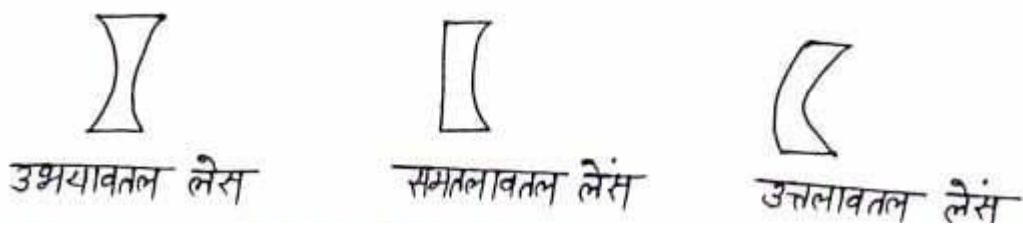 उभयावतल लेंस
समतलावतल लेंस
उत्तलावतल लेंस